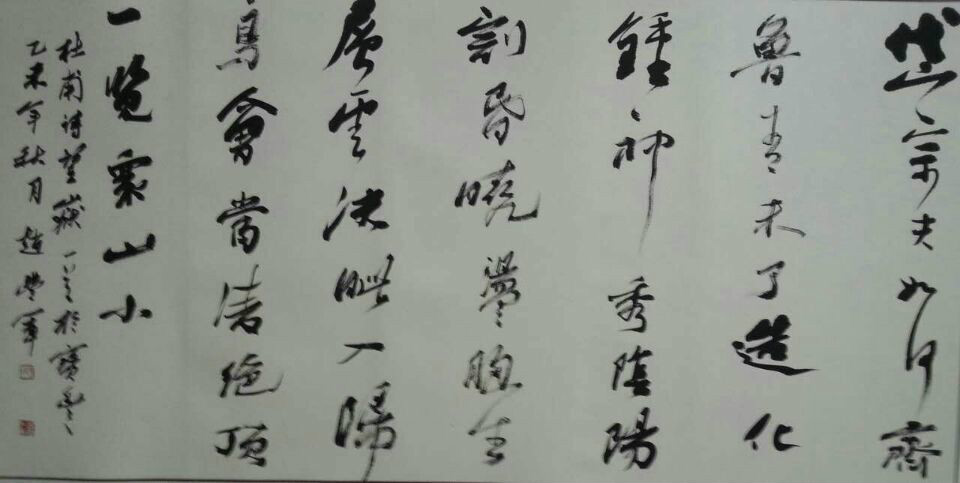 岱宗夫如何齊
魯青未了造化
鍾神秀陰陽
割昏曉盪胸生
層雲決眦入歸
鳥會當凌絕頂
一覽衆山小
杜甫诗望嶽一首於寶
乙未年秋月 趙軍